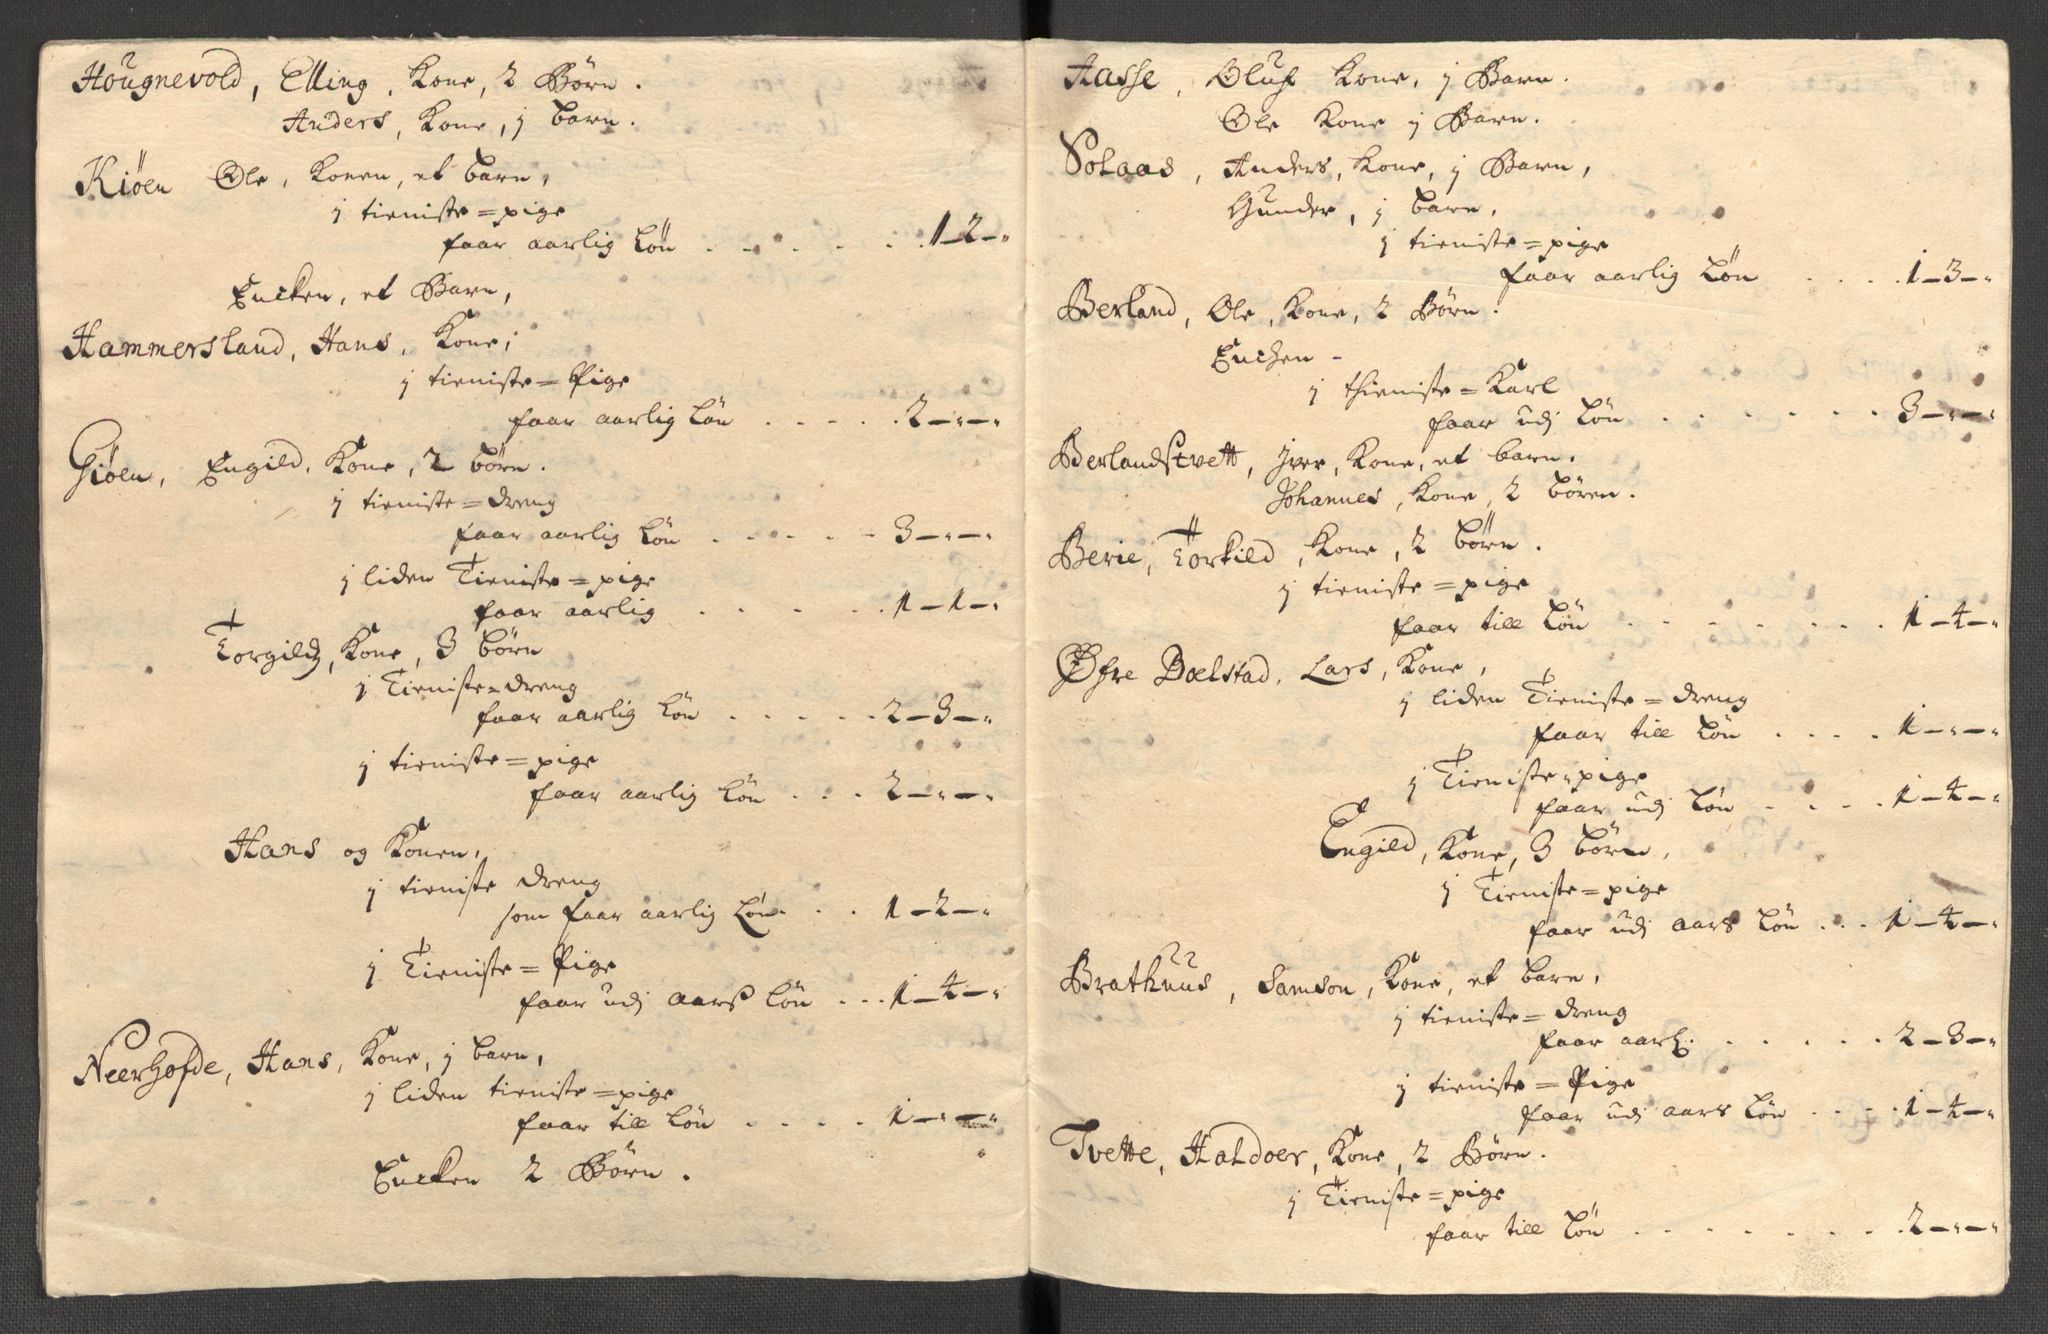 Hougnevold, Elling, Kone, 2 Börn.
Anders, Kone, j barn.
Kiöen Ole, konen, et barn,
j tieniste=pige
faar aarlig Lön . . . . . . 1-2-"
Encken, et Barn,
Hammersland, Hans, Kone;
j tieniste=Pige
faar aarlig Lön . . . . . 2-"-"
Giöen, Engild, Kone, 2 börn.
j tieniste=dreng
faar aarlig Lön . . . . . 3-"-"
j liden Tieniste=pige
faar aarlig . . . . . 1-1-"
Torgild, Kone, 3 börn
j Tieniste=dreng
faar aarlig Lön . . . . . 2-3-"
j tieniste=pige
faar aarlig Lön . . . 2-"-"
Hans og Konen,
j tieniste dreng
som faar aarlig Lön . . . 1-2-"
j Tieniste=Pige
faar udj aarß Lön . . . 1-4-"
Neerhofde, Hans, Kone, j barn,
j liden tieniste=pige
faar till Lön . . . . 1-"-"
Encken 2 Börn.
Aasse, Oluf Kone, j Barn.
Ole Kone j Barn.
Solaas, Anders, Kone, j Barn,
Gunder, j barn,
j tieniste=pige
faar aarlig Lön . . . . 1-3-"
Berland, Ole, Kone, 2 Börn.
Encken -
j thieniste=Karl
faar udj Lön . . . . . . . 3-"-"
Berlandstvett, Iver, Kone, et barn.
Johannes, Kone, 2 bören.
Berie, Torkild, Kone, 2 börn.
j tieniste=pige
faar till Lön . . . . . . . . 1-4-"
Øfre Boelstad, Lars, Kone,
j liden Tieniste=dreng
faar till Lön . . . . 1-"-"
j Tieniste=pige
faar udj Lön . . . . 1-4-"
Engild, Kone, 3 börn,
j Tieniste=pige
faar udj aars Lön . . . 1-4-"
Brathuus, Samson, Kone, et barn,
j tieniste=dreng
faar aarl. . . . . . . 2-3-"
j tieniste=Pige
faar udj aars Lön . . . . 1-4-"
Tvette, Haldoer, Kone, 2 Börn.
j Tieniste=pige
faar till Lön . . . . . . . 2-"-"